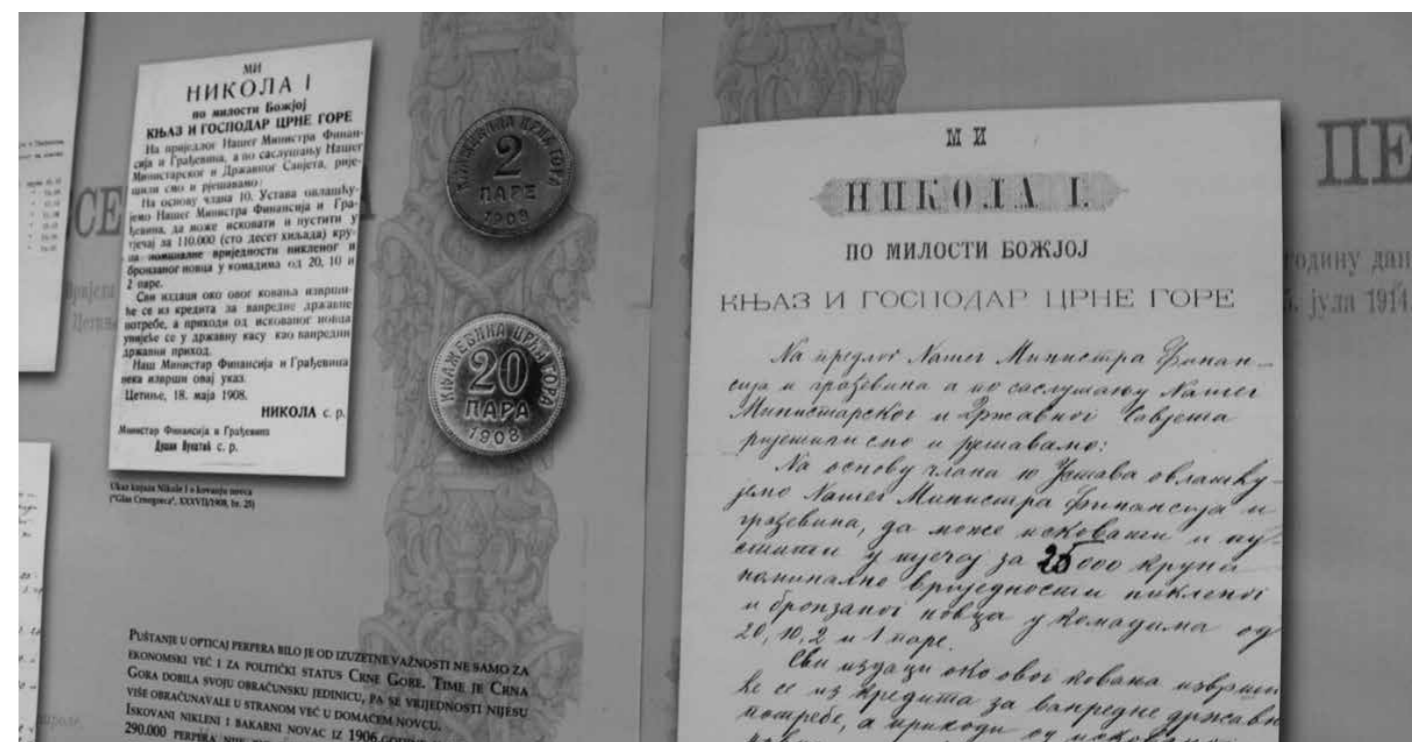 МИ
НИКОЛА I
по милости Божјој
КЊАЗ И ГОСПОДАР ЦРНЕ ГОРЕ
На приједлог Нашег Министра Финан-
сија и Грађевина, а по саслушању Нашег
Министарског и Државног Савјета, рије-
шили смо и рјешавамо:
На основу члана 10. Устава овлашћу-
јемо Нашег Министра Финансија и Гра-
ђевина, да може исковати и пустити у
тјечај за 110.000 (сто десет хиљада) кру-
на номиналне вриједности никленог и
бронзаног новца у комадима од 20, 10 и
2 паре.
Сви издаци око овог ковања изврши-
ће се из кредита за ванредне државне
потребе, а приходи од искованог новца
унијеће се у државну касу као ванредни
државни приход.
Наш Министар Финансија и Грађевина
нека изврши овај указ.
Цетиње, 18. маја 1908.
НИКОЛА с. р.
Министар Финансија и Грађевина
Душан Вукотић с. р.
Ukaz knjaza Nikole I o kovanju novca
("Glas Crnogorca", XXXVII/1908, br. 25)
КЊАЖЕВИНА ЦРНА ГОРА
2
ПАРЕ
1908
КЊАЖЕВИНА ЦРНА ГОРА
20
ПАРА
1908
PUŠTANJE U OPTICAJ PERPERA BILO JE OD IZUZETNE VAŽNOSTI NE SAMO ZA
EKONOMSKI VEĆ I ZA POLITIČKI STATUS CRNE GORE. TIME JE CRNA
GORA DOBILA SVOJU OBRAČUNSKU JEDINICU, PA SE VRIJEDNOSTI NIJESU
VIŠE OBRAČUNAVALE U STRANOM VEĆ U DOMAĆEM NOVCU.
ISKOVANI NIKLENI I BAKARNI NOVAC IZ 1906.
290.000 PERPERA
МИ
НИКОЛА I.
ПО МИЛОСТИ БОЖЈОЈ
КЊАЗ И ГОСПОДАР ЦРНЕ ГОРЕ
На предлог Нашег Министра Финан-
сија и грађевина а по саслушању Нашег
Министарског и Државног Савјета
ријешили смо и рјешавамо:
На основу члана 10 Устава овлашћу-
јемо Нашег Министра Финансија и
грађевина, да може исковати и пу-
стити у тјечај за 25000 круна
номиналне вриједности никленог
и бронзаног новца у комадима од
20, 10, 2 и 1 паре.
Сви издаци око овог кована изврши
ће се из кредита за ванредне државн
потребе, а приходи од
ПЕ
годину дан
јула 1914.